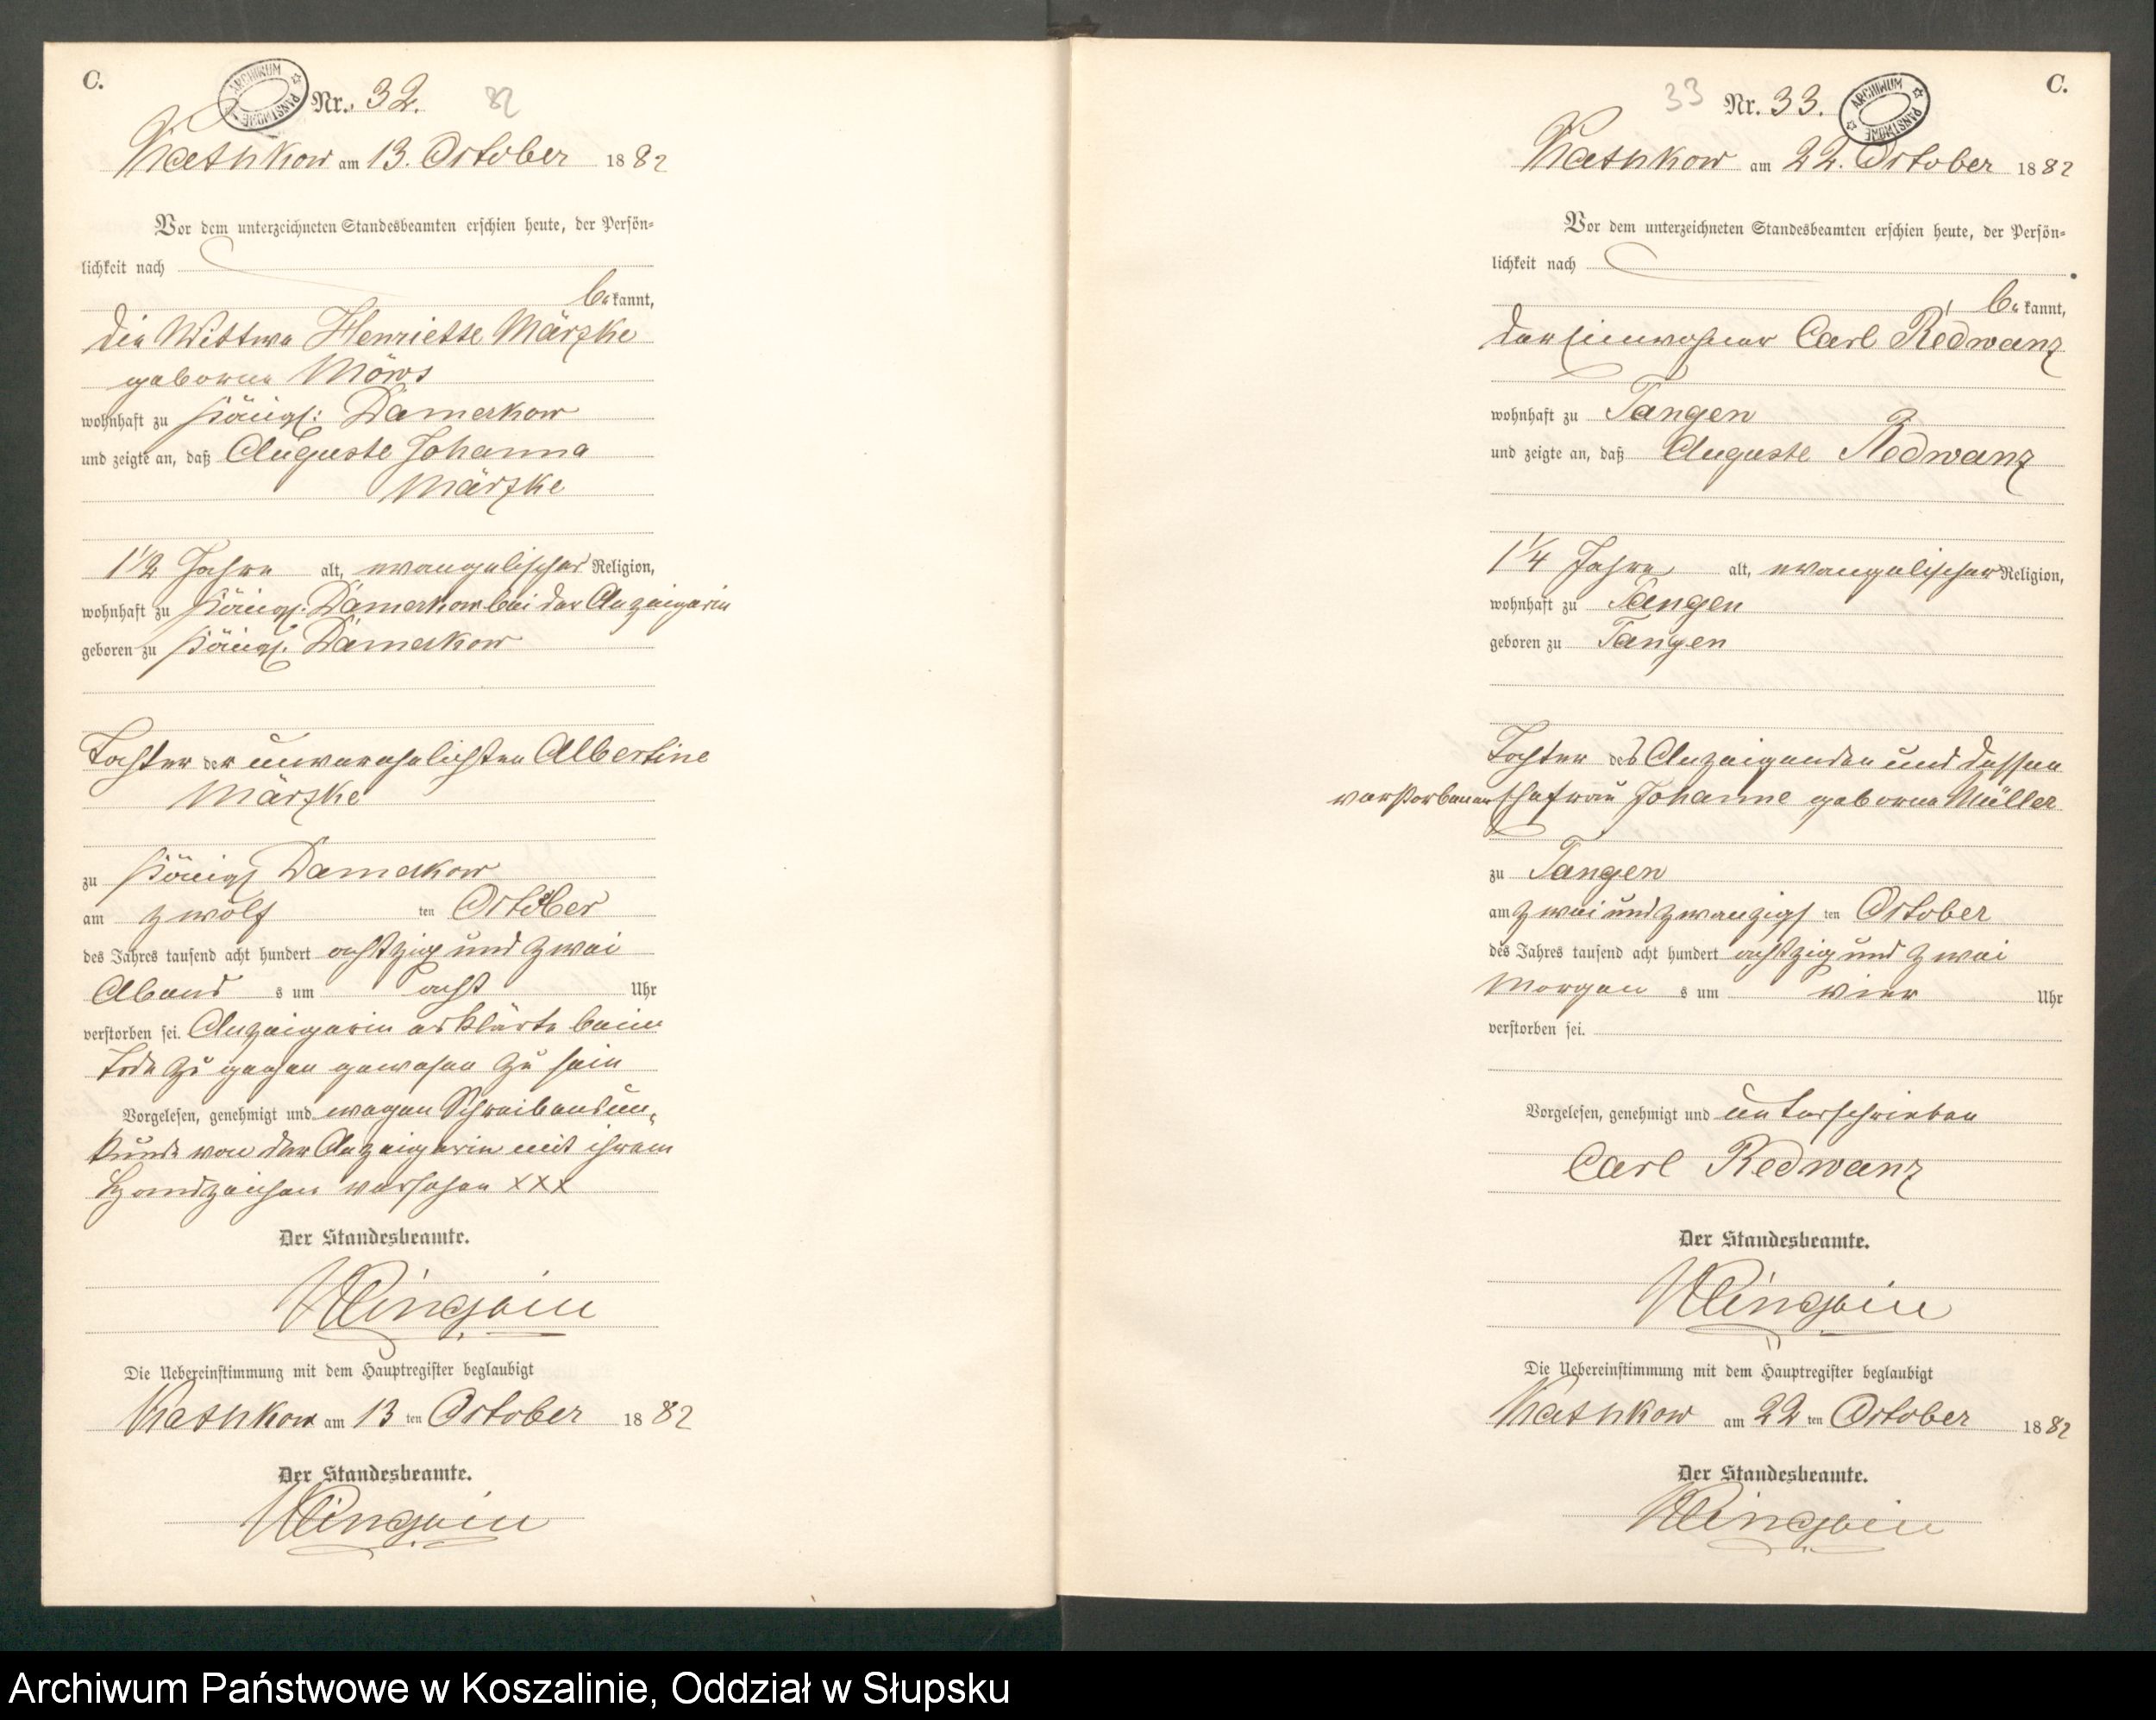 C.
ARCHIWUM PAŃSTWOWE
Nr. 32.
82
Kathkow am 13. October 1882
Vor dem unterzeichneten Standesbeamten erschien heute, der Persön=
lichkeit nach
bekannt,
die Wittwe Henriette Märzke
geborne Möws
wohnhaft zu Königl: Damerkow
und zeigte an, daß Auguste Johanna
Märzke
1 1/2 Jahre alt, evangelischer Religion,
wohnhaft zu Königl: Damerkow bei der Anzeigerin
geboren zu Königl. Damerkow
Tochter der unverehelichten Albertine
Märzke
zu Königl Damerkow
am zwölf ten October
des Jahres tausend acht hundert achtzig und zwei
Abend s um acht Uhr
verstorben sei. Anzeigerin erklärte beim
Tode zugegen gewesen zu sein
Vorgelesen, genehmigt und wegen Schreibensun=
kunde von der Anzeigerin mit ihrem
Handzeichen versehen XXX
Der Standesbeamte.
Die Uebereinstimmung mit dem Hauptregister beglaubigt
Kathkow am 13 ten October 1882
Der Standesbeamte.
C.
33
Nr. 33.
ARCHIWUM PAŃSTWOWE
Kathkow am 22. October 1882
Vor dem unterzeichneten Standesbeamten erschien heute, der Persön=
lichkeit nach
bekannt,
der Einwohner Carl Redwanz
wohnhaft zu Tangen
und zeigte an, daß Auguste Redwanz
1 1/4 Jahre alt, evangelischer Religion,
wohnhaft zu Tangen
geboren zu Tangen
Tochter des Anzeigenden und dessen
verstorbenen Ehefrau Johanne geborne Müller
zu Tangen
am zwei und zwanzigs ten October
des Jahres tausend acht hundert achtzig und zwei
Morgen s um vier Uhr
verstorben sei.
Vorgelesen, genehmigt und unterschrieben
Carl Redwanz
Der Standesbeamte.
Die Uebereinstimmung mit dem Hauptregister beglaubigt
Kathkow am 22 ten October 1882
Der Standesbeamte.
Archiwum Państwowe w Koszalinie, Oddział w Słupsku